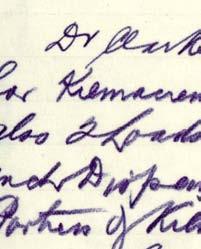 Dr Clarke
for Kilmacren
also 2 Loads
and Dispen
Porters of Kil